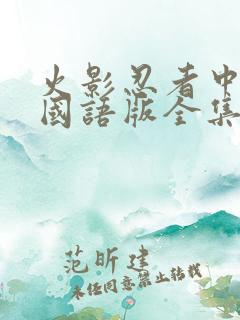 火影忍者中
國語版全集
范昕建
未经同意禁止转载